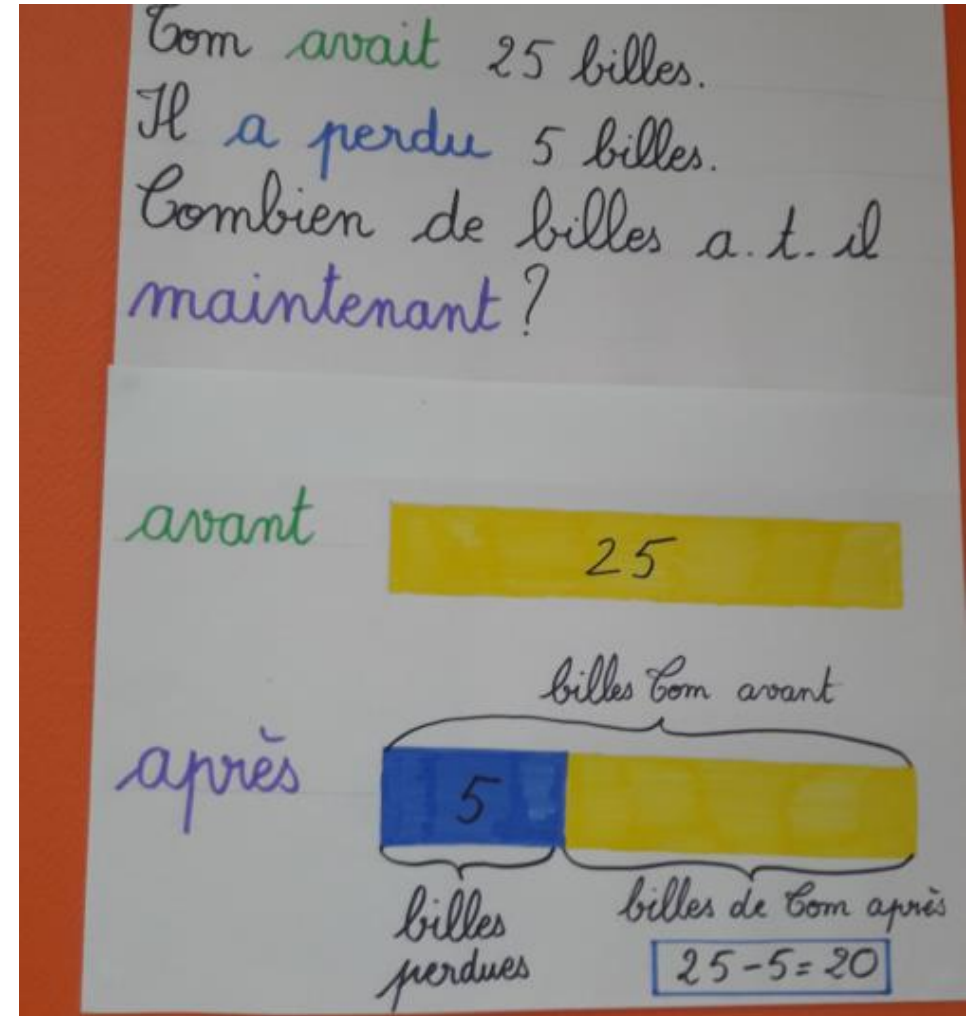 Tom avait 25 billes.
Il a perdu 5 billes.
Combien de billes a.t.il
maintenant ?
avant
25
billes Tom avant
après
5
billes
perdues
billes de Tom après
25-5=20